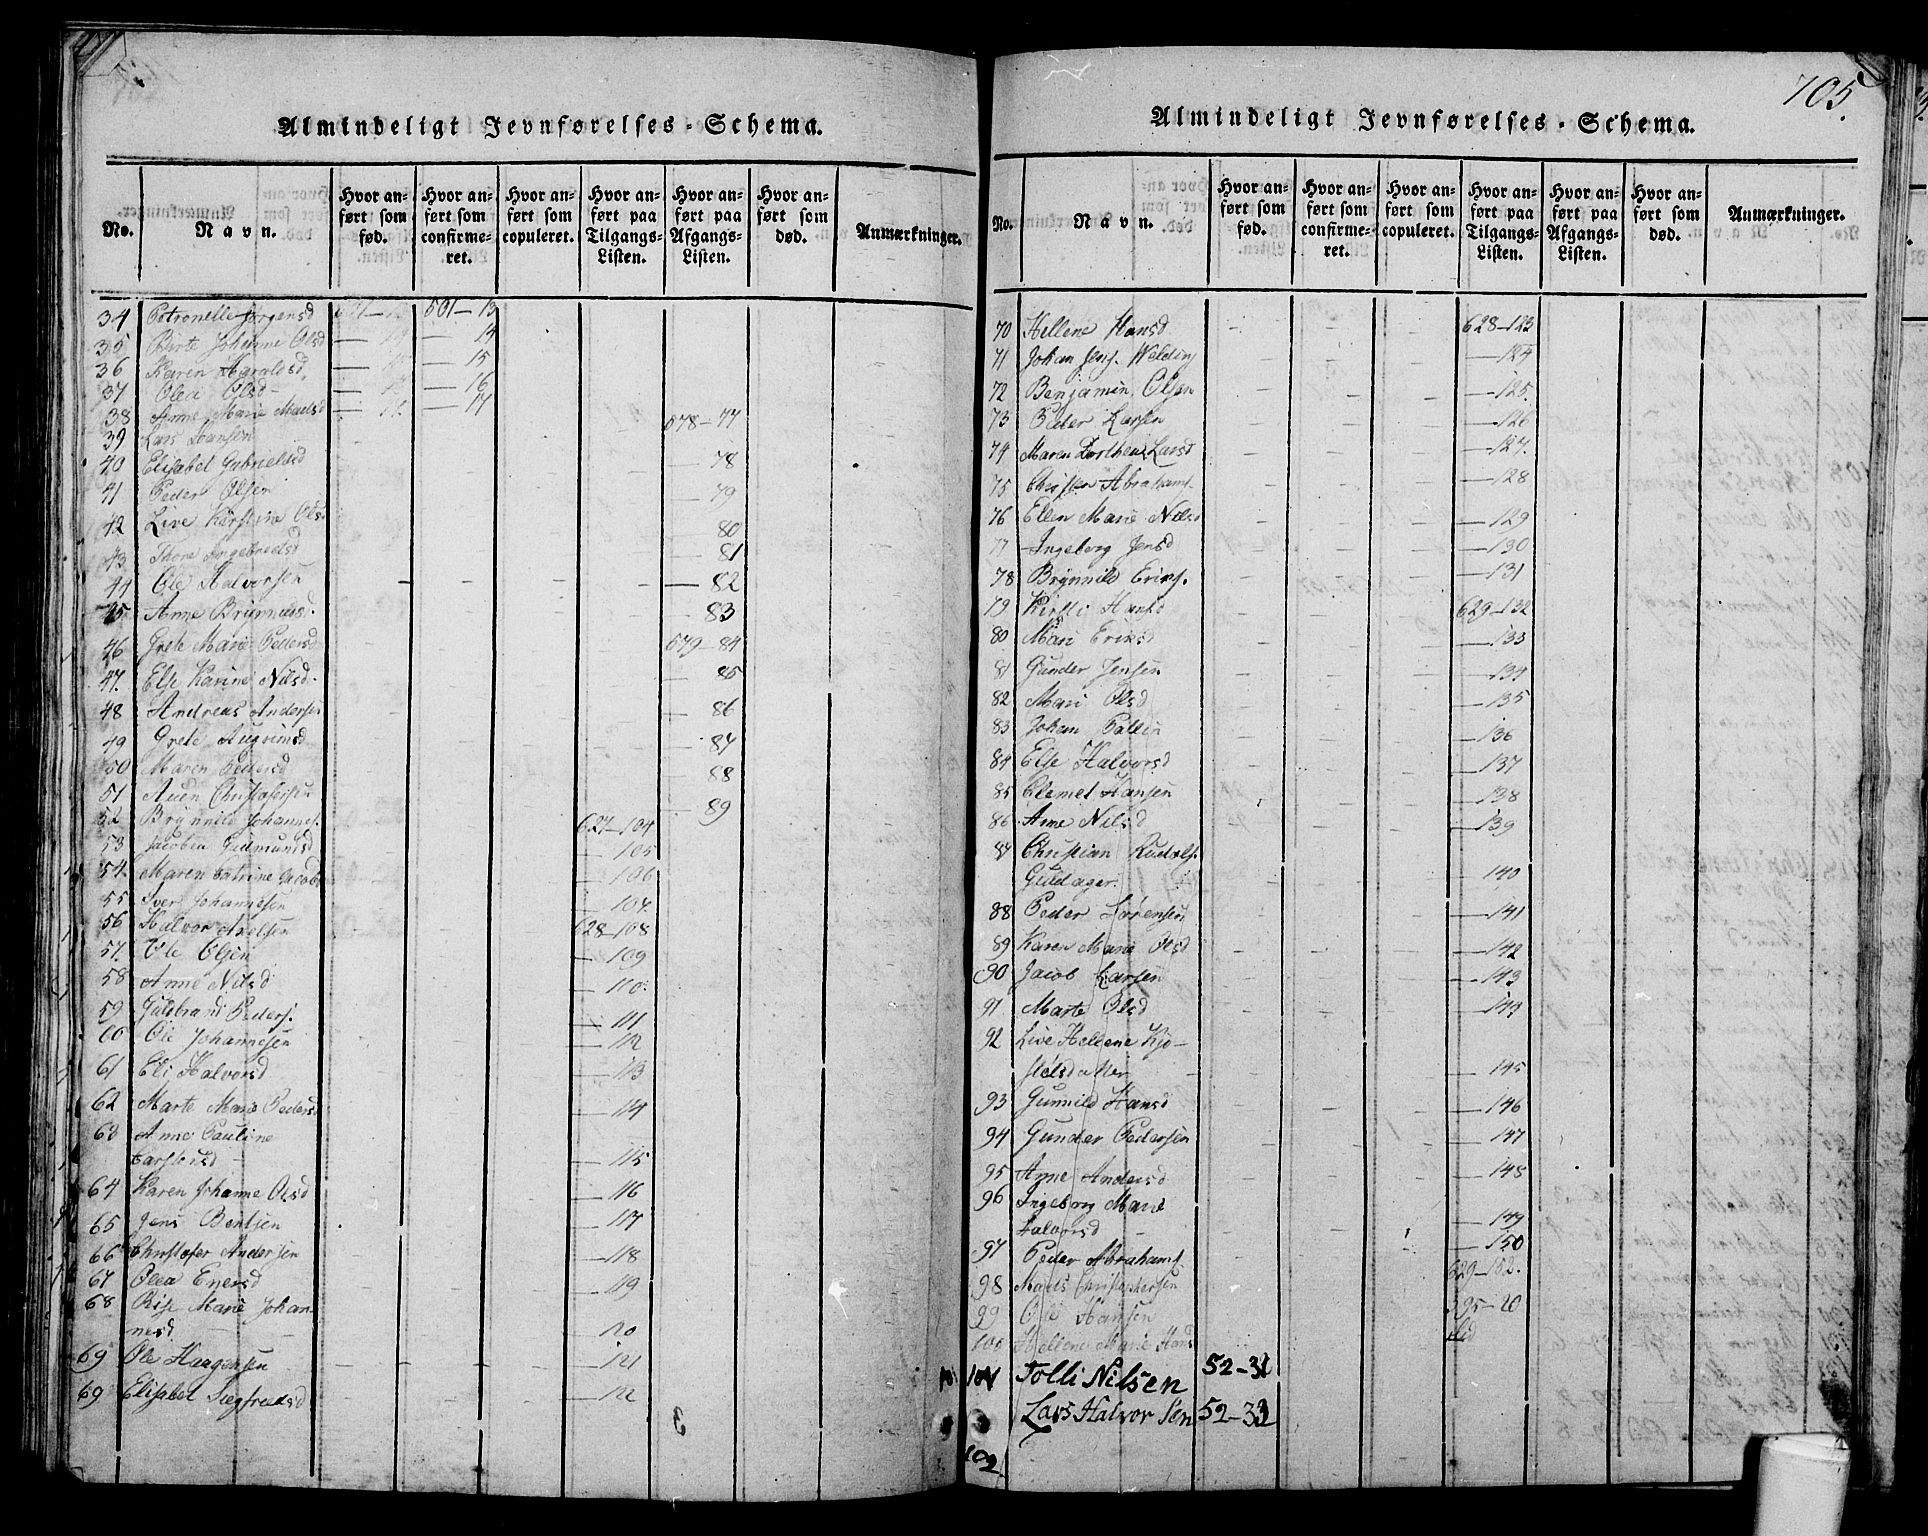 705.
Almindeligt Jevnførelses-Schema.
No.
Navn.
Hvor anført som fød.
Hvor anført som confirmeret.
Hvor anført som copuleret.
Hvor anført paa Tilgangs-Listen.
Hvor anført paa Afgangs-Listen.
Hvor anført som død.
Anmærkninger.
34 Petronelle Jørgensd 501—13
35 Birte Johanne Olsd — 14
36 Karen Haraldsd — 15
37 Olea Olsd — 16
38 Anne Marie Madsd — 17
39 Lars Hansen 578—77
40 Elisabet Gabrielsd — 78
41 Peder Olsen — 79
42 Live Kirstine Ols. 80
43 Thore Ingebredsd — 81
44 Ole Halvorsen — 82
45 Anne Brÿnnilds. 83
46 Grete Marie Pedersd 579—84
47. Else Karine Nilsd. — 85
48 Andreas Andersen — 86
49 Grete — 87
50 Maren Pedersd 88
51 Auen Christofersen — 89
52 Brÿnnild Johannes. 627—104
53 Jacobea Gudmundsd — 105
54. Maren Catrine Jacobs — 106
55 Iver Johannesen — 107.
56 Halvor Axelsen 628—108
57. Ole Olsen — 109
58 Anne Nilsd — 110.
59 Gulbrand Peders. — 111
60 Ole Johannesen — 112
61 Eli Halvorsd — 113
62 Marte Marie Pedersd — 114
63 Anne Pauline
Larsteusd — 115
64 Karen Johanne Olsd — 116
65 Jens Bentsen — 117
66 Christofer Andersen — 118
67 Olea Enersd — 119
68 Rise Marie Johan-
nesd — 120
69 Ole Haagensen — 121
69 Elisabet Siegfredsd — 122
Almindeligt Jevnførelses-Schema.
No.
Navn.
Hvor anført som fød.
Hvor anført som confirmeret.
Hvor anført som copuleret.
Hvor anført paa Tilgangs-Listen.
Hvor anført paa Afgangs-Listen.
Hvor anført som død.
Anmærkninger.
70 Hellene Hansd 628—123
71 Johan Jens. Welding — 124
72 Benjamin Olsen — 125.
73 Peder Larsen — 126
74 Maren Dorthea Larsd — 127.
75 Christen Abrahams. — 128
76 Ellen Marie Nilsd — 129
77 Ingeborg Jensd — 130
78 Brÿnnild Erics. — 131
79 Kirsti Hansd 629—132
80 Mari Ericsd — 133
81 Gunder Jensen — 134
82 Mari Olsd — 135
83 Johan Pallin — 136
84 Else Halvorsd — 137
85 Clemet Hansen — 138
86 Anne Nilsd — 139
87 Christian Rudols.
Guldager. — 140
88 Peder Sørensen — 141
89 Karen Marie Olsd — 142
90 Jacob Larsen — 143
91 Marte Olsd — 144
92 Live Hellene Kjø-
stelsdatter — 145
93 Gunnild Hansd — 146
94 Gunder Pedersen — 147
95 Anne Andersd — 148
96 Ingeborg Marie
Halvorsd — 149
97 Peder Abrahams. — 150
98 Mads Christophersen 629—152.
99 Ole Hansen 395—20
100 Hellene Marie Hansd
101 Tolli Nilsen 52-31
Lars Halvor Sen 52-33
102